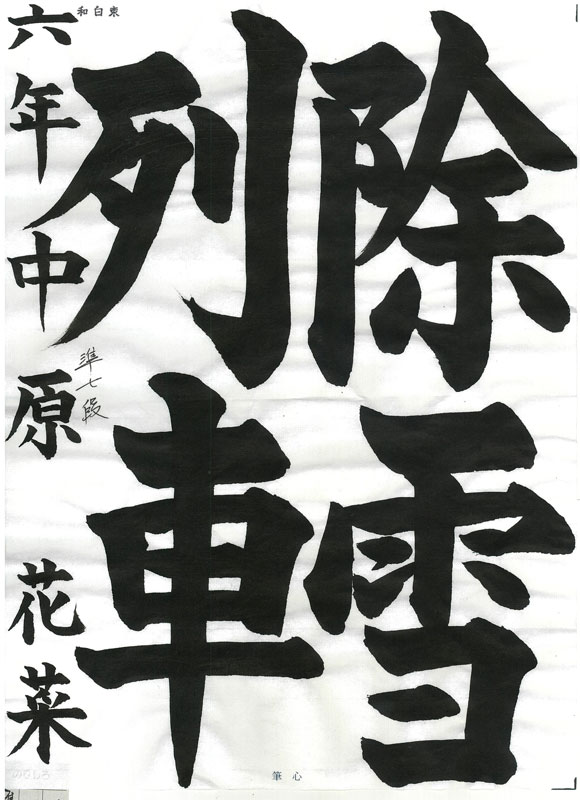 除雪
列車
六年 中原 花菜
準七段
和白東
筆心
のりしろ